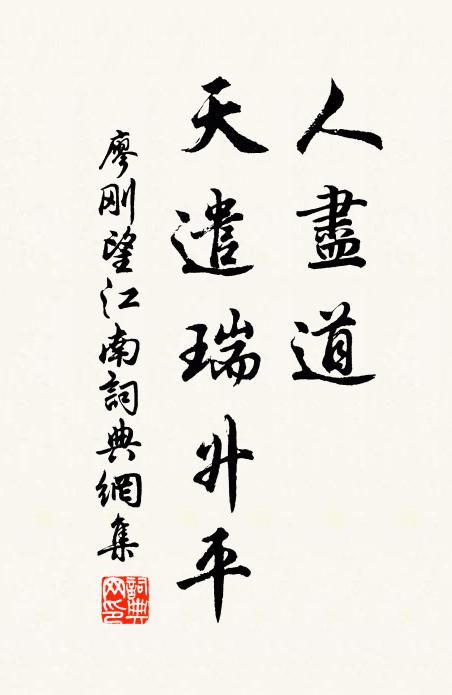 人盡道
天遣瑞升平
廖刚望江南詞典網集
詞典
网印